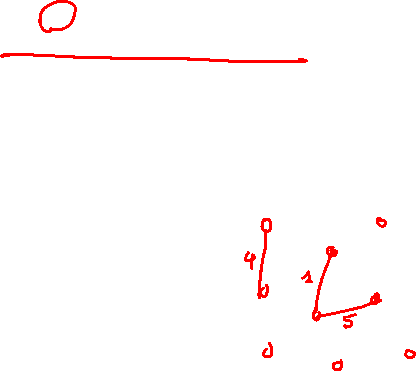 4
1
5